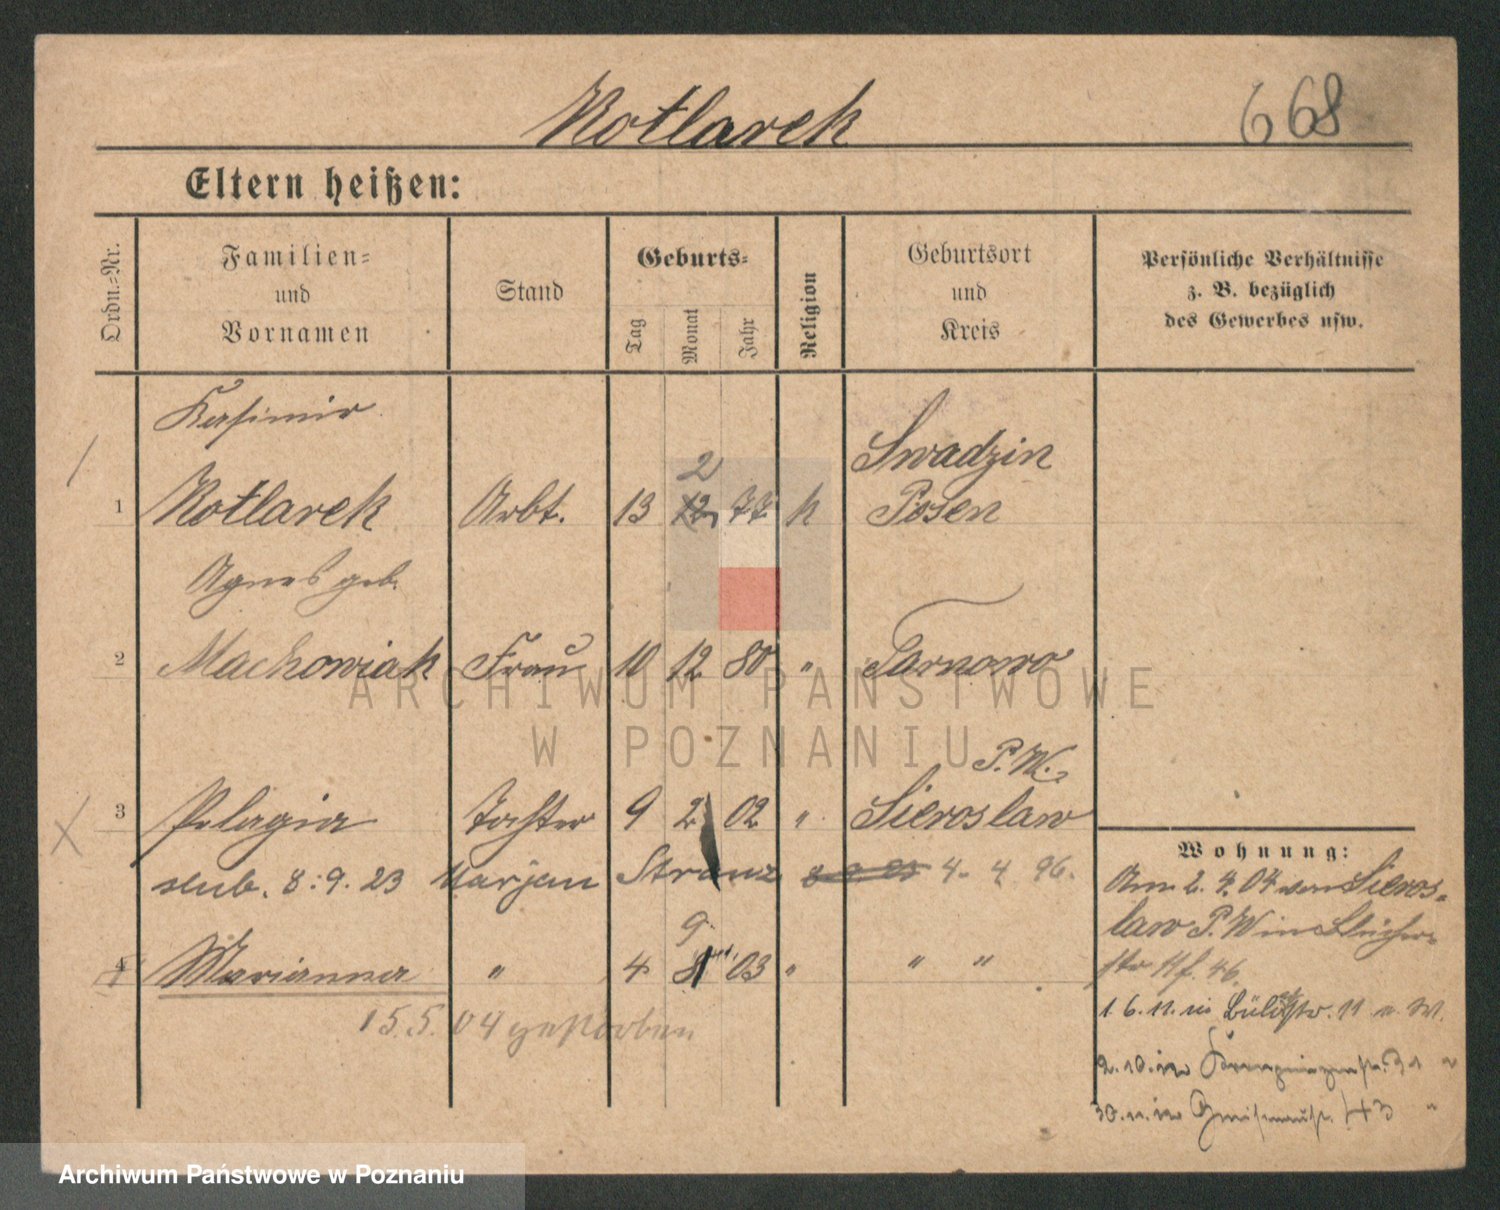 Kotlarek
668
Eltern heißen:
Ordn.-Nr.
Familien-
und
Vornamen
Stand
Geburts-
Tag
Monat
Jahr
Religion
Geburtsort
und
Kreis
Persönliche Verhältnisse
z. B. bezüglich
des Gewerbes usw.
Kasimir
Swadzin
2
1 Kotlarek Arbt. 13 12 77 k Posen
Agnes geb.
2 Machowiak Frau 10 12 80 " Tarnowo
P. W.
3 Pelagia Tochter 9 2 02 " Sieroslaw
slub. 8.9.23 Marjan Stranz 4. 4 96.
9
4 Marianna " 4 8 03 " " "
15.5.04 gestorben
Wohnung:
Am 2.4.04 von Sieros-
law P.W in Blücher-
str Hf. 46.
1 6.11. in 11
2.10. 31 "
30.11. 43 "
ARCHIWUM PAŃSTWOWE
W POZNANIU
Archiwum Państwowe w Poznaniu